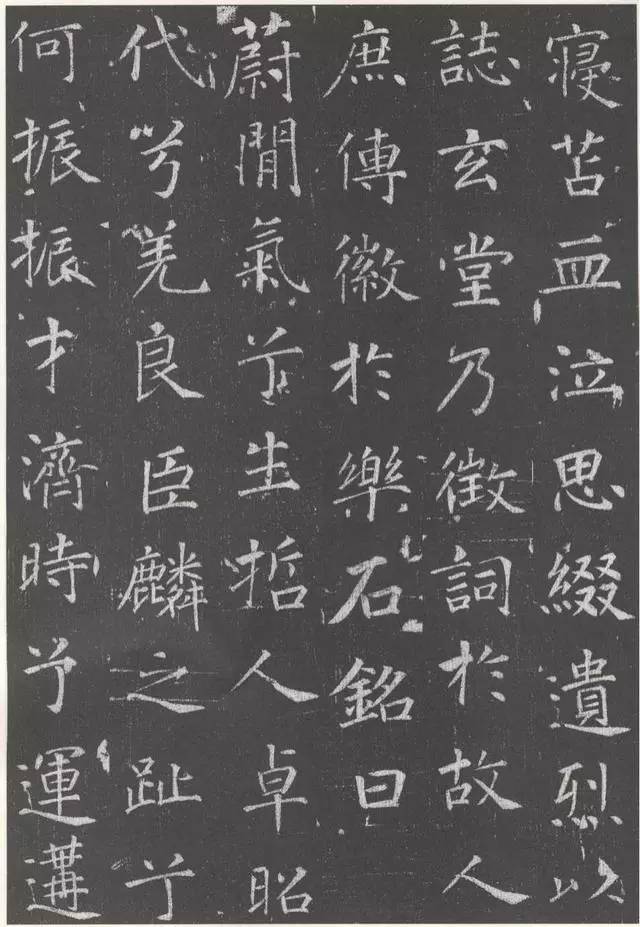 寢苫血泣思綴遺烈以
誌玄堂乃徵詞於故人
庶傳徽於樂石銘曰
蔚閒氣兮生哲人卓昭
代兮羌良臣麟之趾兮
何振振才濟時兮運遘